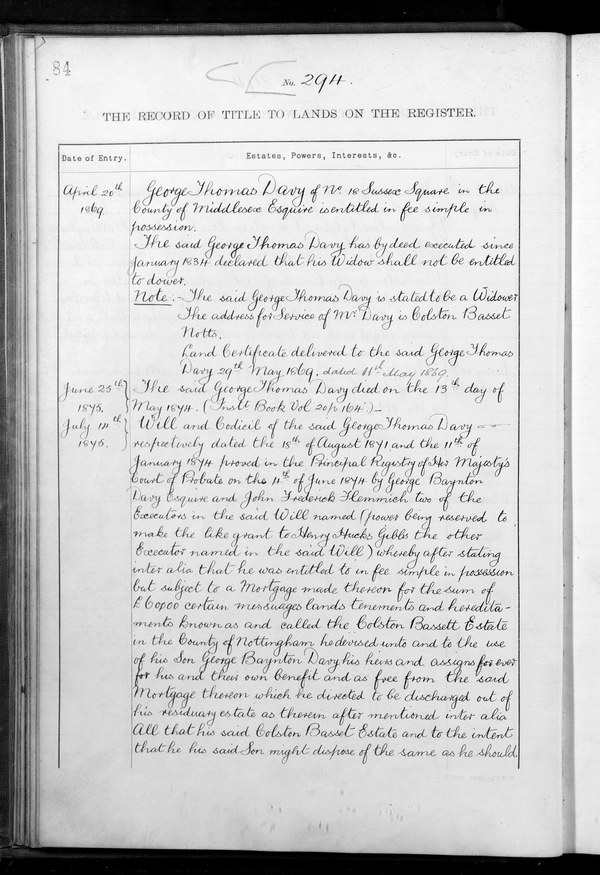 84
No. 294.
THE RECORD OF TITLE TO LANDS ON THE REGISTER.
Date of Entry.
Estates, Powers, Interests, &c.
April 20th
1869
George Thomas Davy of No. 18 Sussex Square in the
County of Middlesex Esquire is entitled in fee simple in
possession.
The said George Thomas Davy has by deed executed since
January 1834 declared that his Widow shall not be entitled
to dower.
Note:- The said George Thomas Davy is stated to be a Widower
The address for Service of Mr Davy is Colston Basset
Notts.
Land Certificate delivered to the said George Thomas
Davy 29th May 1869. dated 11th May 1869.
June 25th
1875.
The said George Thomas Davy died on the 13th day of
May 1874. (Instt Book Vol 20 p 164.)
July 14th
1875.
Will and Codicil of the said George Thomas Davy
respectively dated the 18th of August 1871 and the 11th of
January 1874 proved in the Principal Registry of Her Majesty's
Court of Probate on the 4th of June 1874 by George Baynton
Davy Esquire and John Frederick Flemmich two of the
Executors in the said Will named (power being reserved to
make the like grant to Henry Hucks Gibbs the other
Executor named in the said Will) whereby after stating
inter alia that he was entitled to in fee simple in possession
but subject to a Mortgage made thereon for the sum of
£60000 certain messuages lands tenements and heredita-
ments known as and called the Colston Bassett Estate
in the County of Nottingham he devised unto and to the use
of his Son George Baynton Davy his heirs and assigns for ever
for his and their own benefit and as free from the said
Mortgage thereon which he directed to be discharged out of
his residuary estate as therein after mentioned inter alia
All that his said Colston Basset Estate and to the intent
that he his said Son might dispose of the same as he should